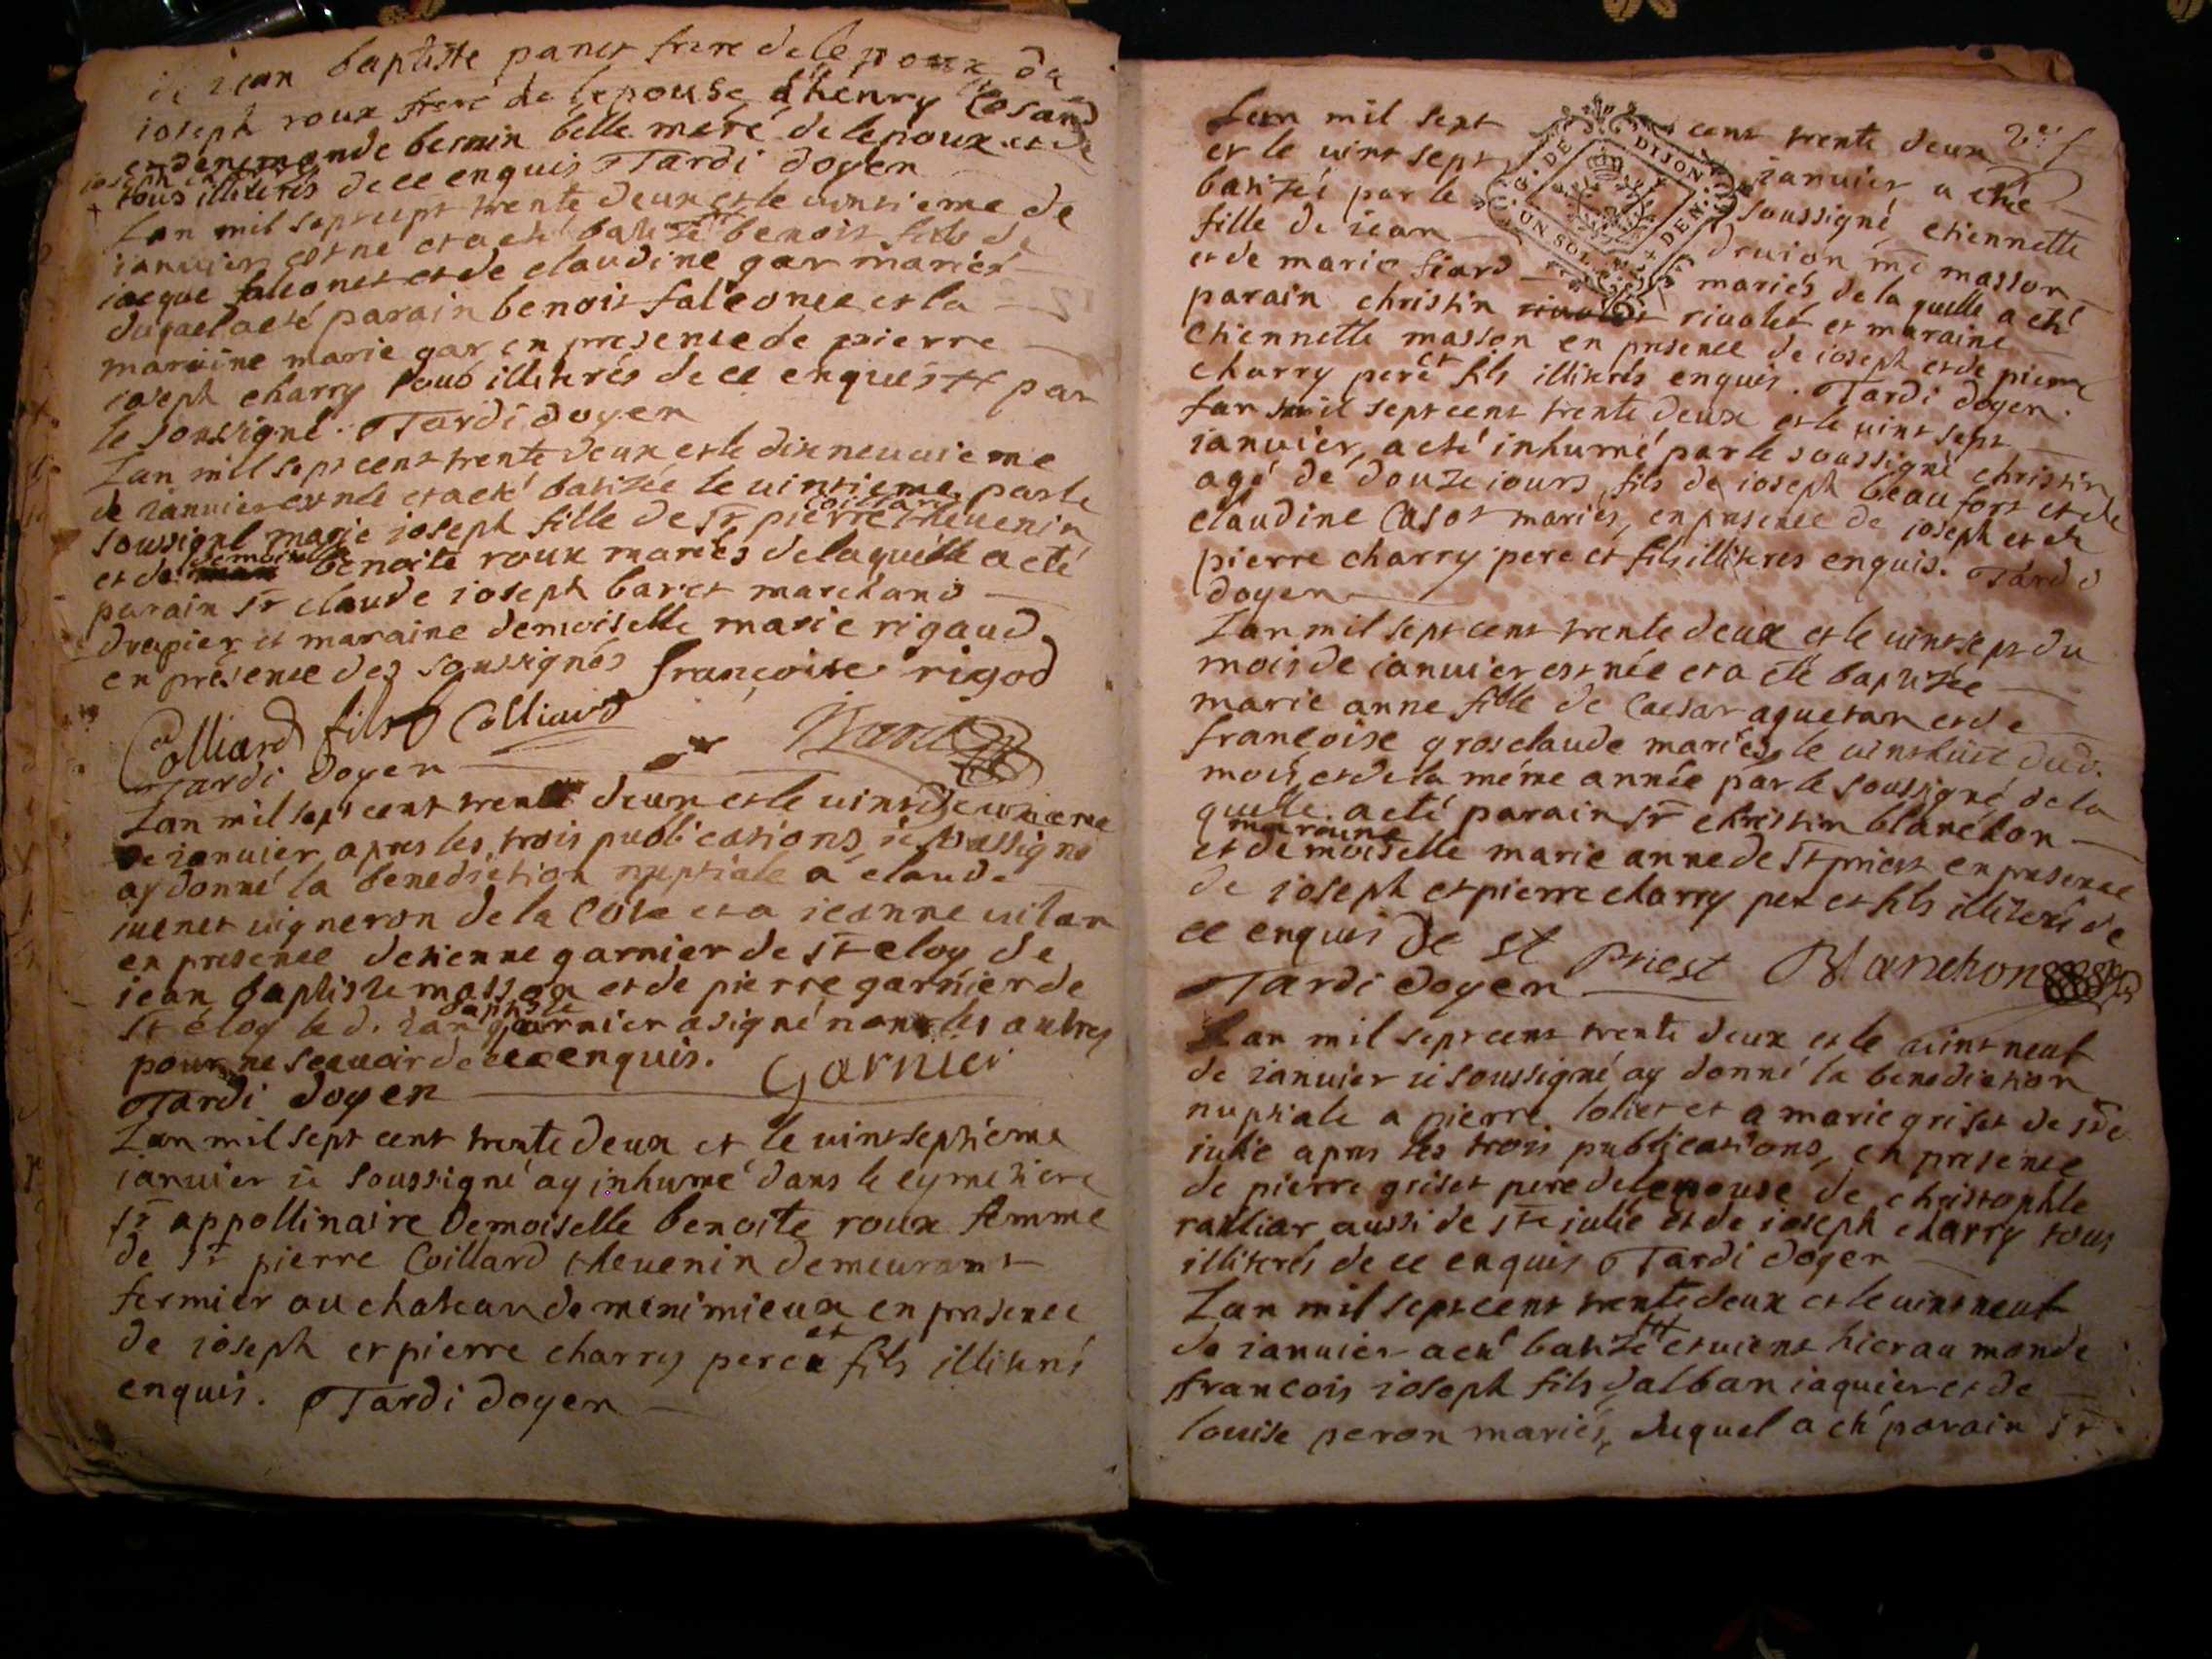 de jean baptiste panet frere de lepoux de
ioseph roux frere de lepouse d'henry Cosand
et denemonde bernin belle mere de lepoux et de
tous illiterés de ce enquis Tardi doyen
Lan mil sept cept trente deux et le vintieme de
ianuier est né et a eté batisé benoit fils de
iaque falconet et de claudine gar mariés
duquel a eté parain benoit falconet et la
maraine marie gar en presence de pierre
ioseph charry tous illiterés de ce enquis par
le soussigné. Tardi doyen
Lan mil sept cent trente deux et le dix neuuieme
de ianuier est née et a eté batizée le vintieme par le
coillard
soussigné marie ioseph fille de Sr pierre theuenin
demoiselle
et de benoite roux mariés de laquelle a eté
parain Sr claude ioseph baret marchand
drapier et maraine demoiselle marie rigaud
en présence des soussignés françoise rigod
Colliard fils Colliard
Tardi doyen
Lan mil sept cent trente deux et le vint deuxieme
de ianuier apres les trois publications ie soussigné
ay donné la benediction nuptiale a claude
iuenet uigneron de la Cote et a ieanne uilan
en presence detienne garnier de St eloy de
iean baptiste masson et de pierre garnier de
baptiste
St éloy le d. ian garnier a signé non les autres
pour ne scauoir de ce enquis. Garnier
Tardi doyen
Lan mil sept cent trente deux et le vint septieme
ianuier ie soussigné ay inhumé dans le cymetiere
St appollinaire Demoiselle benoite roux femme
de Sr pierre Coillard theuenin demeurant
fermier au chateau de menimieux en presence
de ioseph et pierre charry pere et fils illiterés
enquis. Tardi doyen
2e f
Lan mil sept cent trente deux
et le vint sept ianuier a eté
batizée par le soussigné etiennette
fille de iean druion me masson
et de marie fiard mariés de la quelle a eté
parain christin riualet et maraine
etiennette masson en presence de ioseph et de pierre
charry pere et fils illiterés enquis. Tardi doyen.
Lan mil sept cent trente deux et le vint sept
ianuier, a eté inhumé par le soussigné christin
agé de douze iours, fils de ioseph beaufort et de
claudine Casot mariés, en presence de ioseph et de
pierre charry pere et fils illiteres enquis. Tardi
doyen
Lan mil sept cent trente deux et le vint sept du
mois de ianuier est née et a eté baptizée
marie anne fille de Caesar aquetan et de
françoise grosclaude mariés, le vinthuit dud.
mois, et de la méme année par le soussigné de la
quelle a eté parain Sr christin blanchon
maraine
et demoiselle marie anne de St priest en presence
de ioseph et pierre charry pere et fils illiterés de
ce enquis De St Priest Blanchon
Tardi doyen
Lan mil sept cent trente deux et le vint neuf
de ianuier ie soussigné ay donné la benediction
nuptiale a pierre loliet et a marie griset de ste
iulie apres les trois publications, en presence
de pierre griset pere de lepouse de christophle
ralliar aussi de ste iulie et de ioseph charry tous
illiterés de ce enquis Tardi doyen
Lan mil sept cent trente deux et le vint neuf
de ianuier a eté batizé et uient hier au monde
francois ioseph fils d'alban iaquier et de
louise peron mariés, duquel a eté parain Sr
G. DE DIJON
UN SOL
DEN.